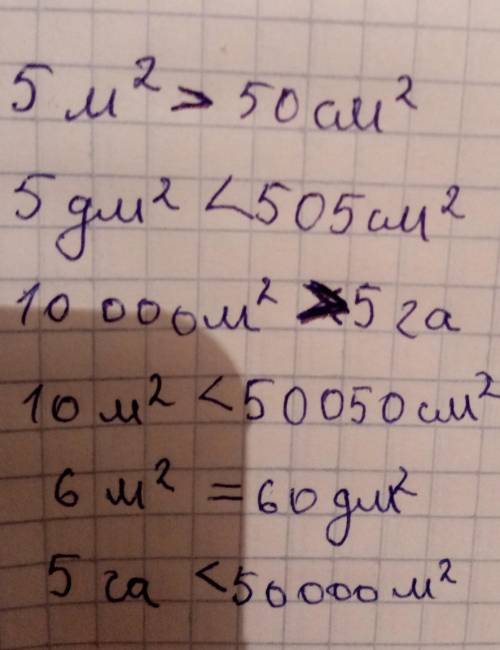 5 м² > 50 см²
5 дм² < 505 см²
10 000 м² > 5 га
10 м² < 50050 см²
6 м² = 60 дм²
5 га < 50000 м²